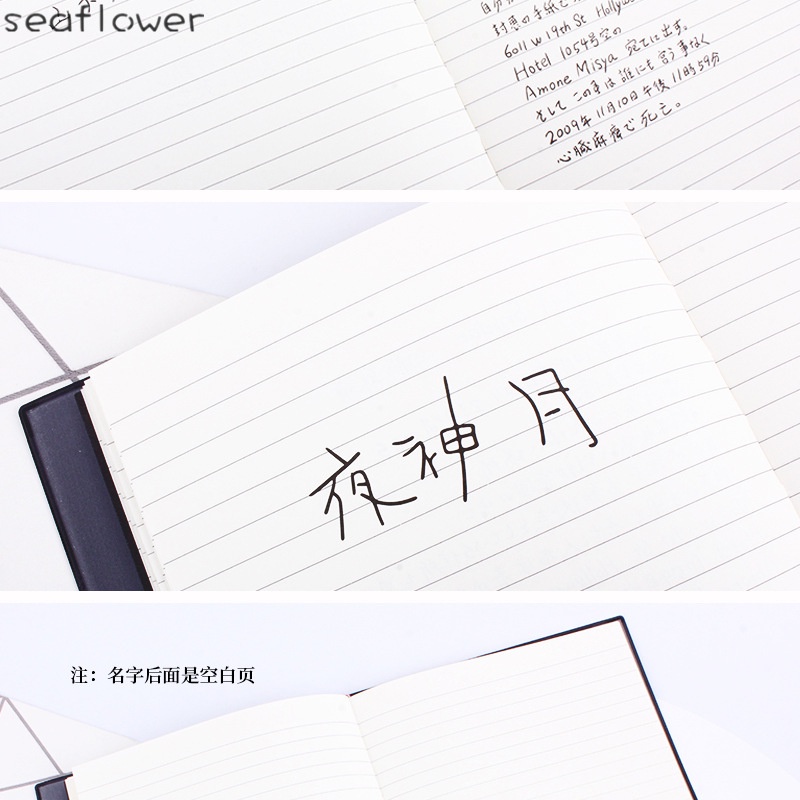 seaflower
封悪の手紙で
6011 w 19th St Hollyw
Hotel 1054号室の
Amone Misya 宛てに出す。
そして この事は誰にも言う事なく
2009年 11月10日午後 11時59分
心臓麻痺で死亡。
夜神 月
注：名字后面是空白页